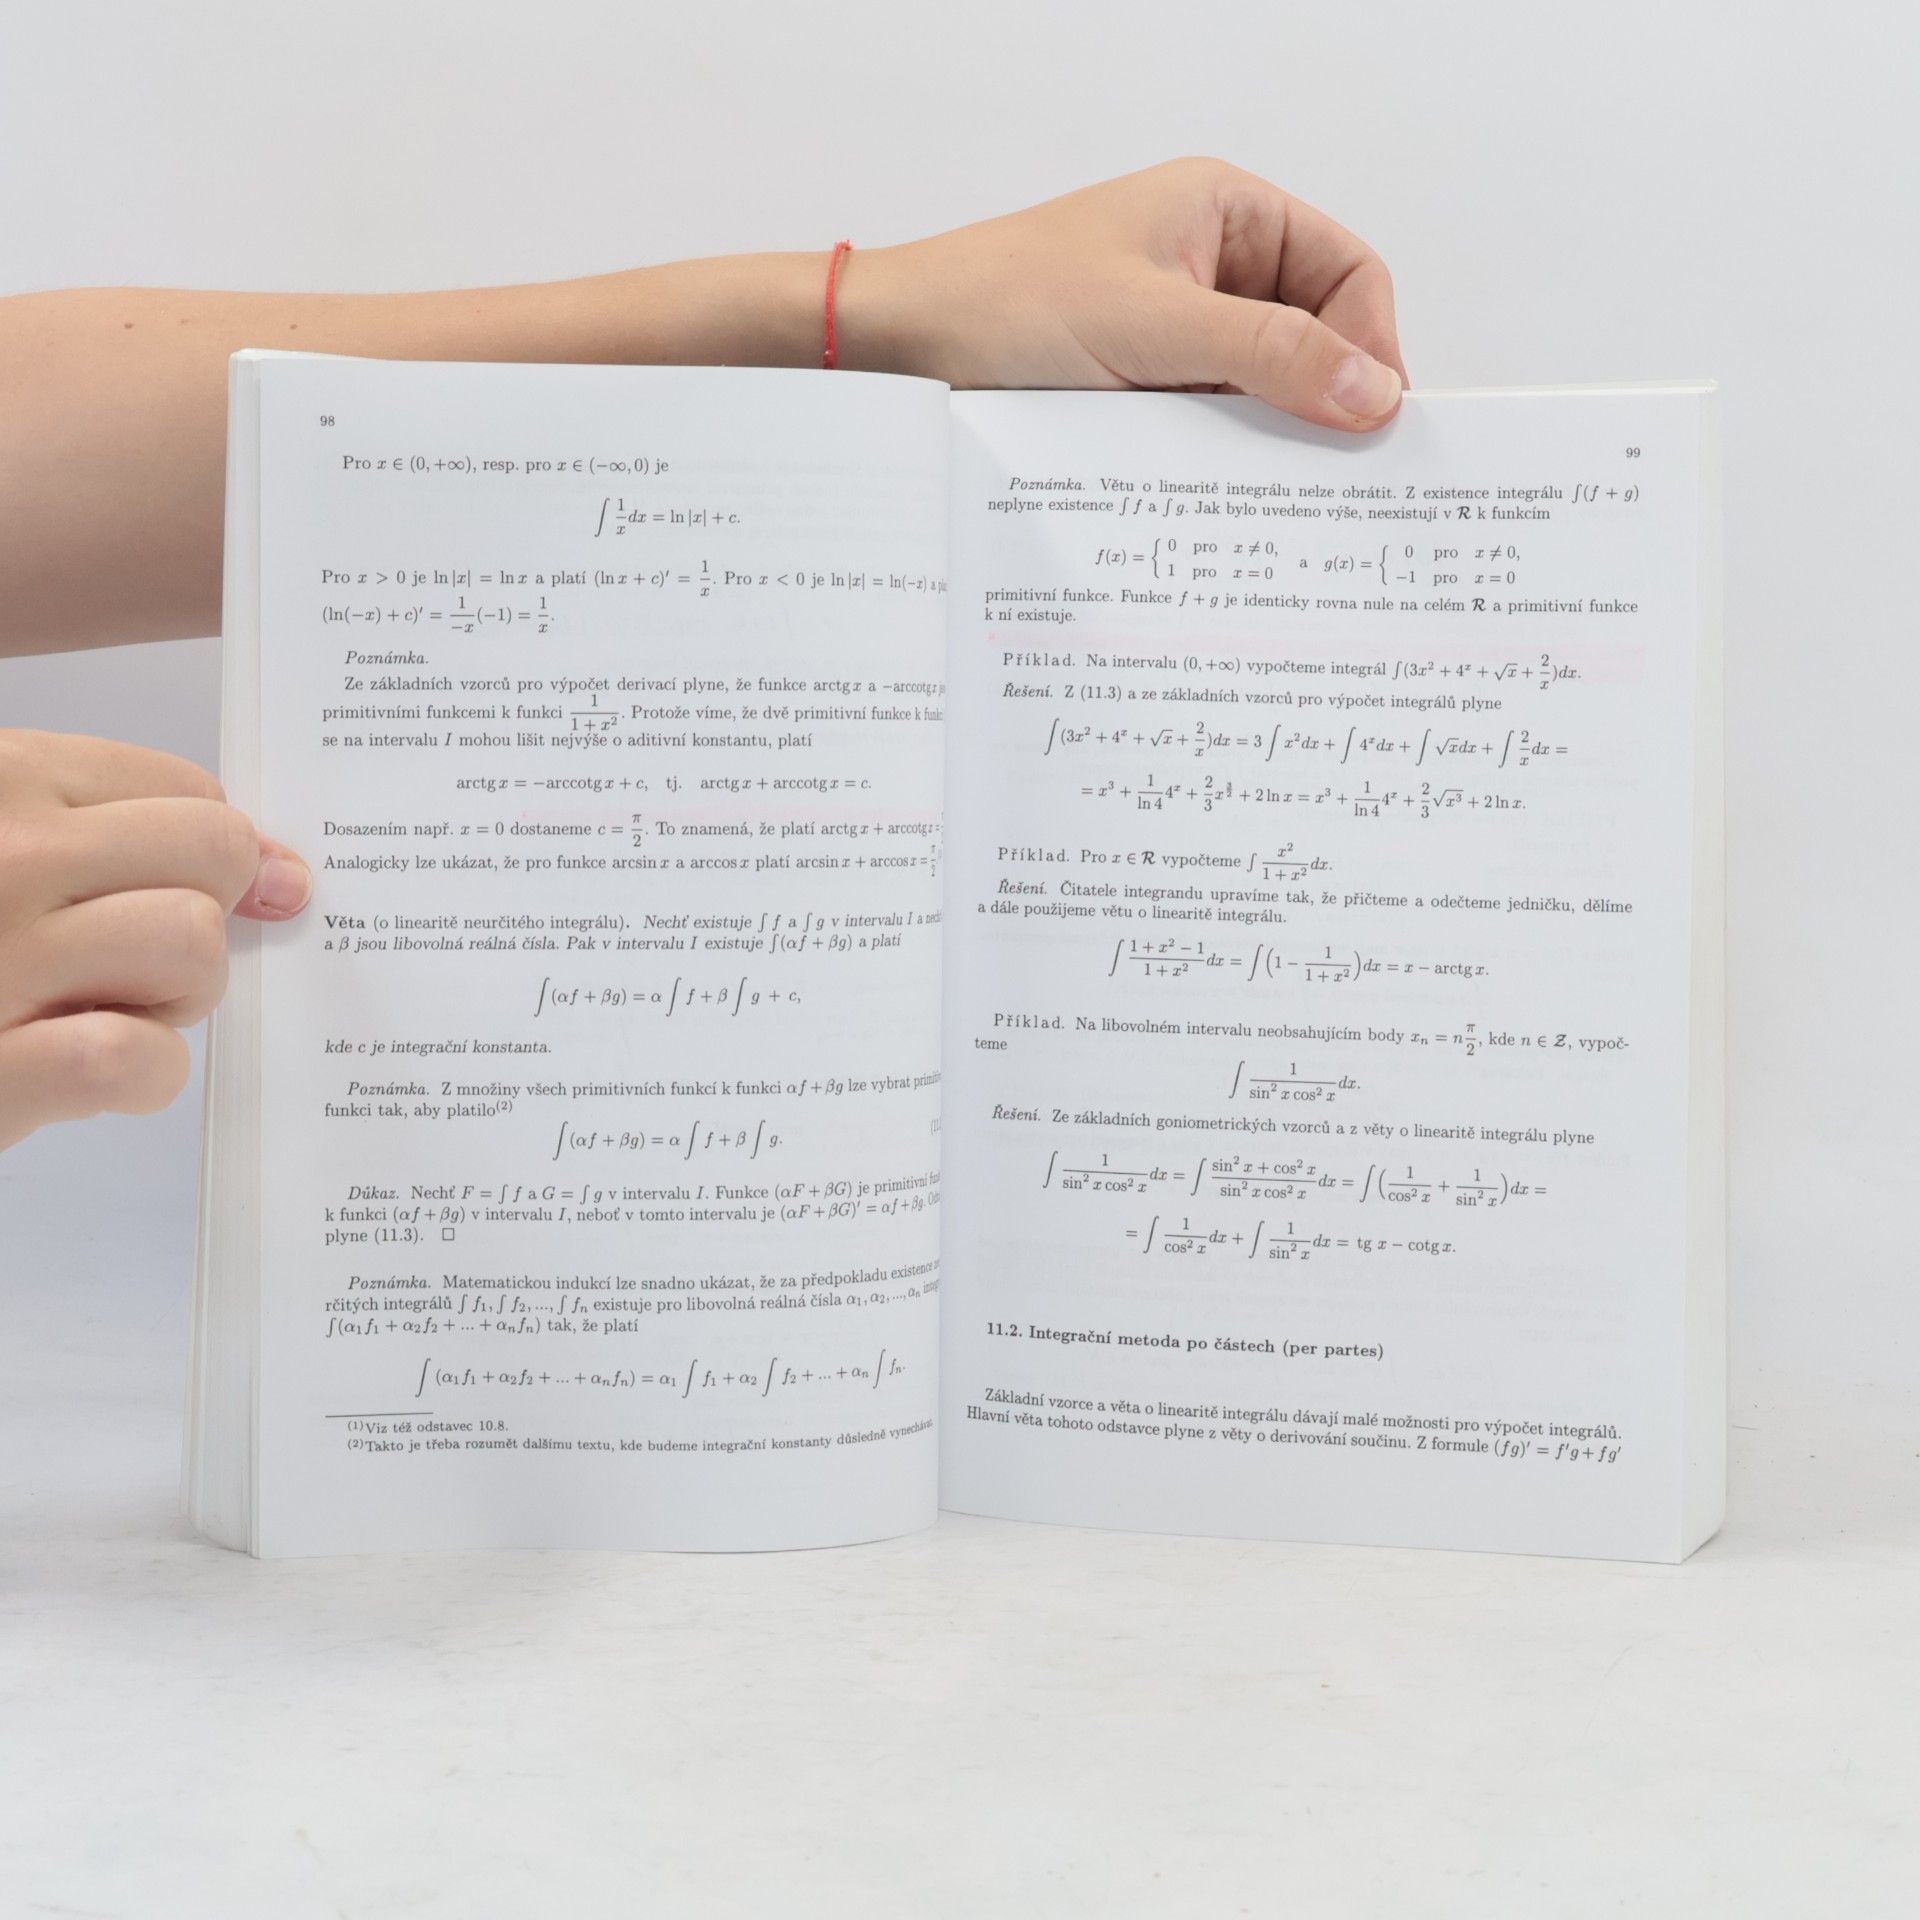 98
Pro x ∈ (0, +∞), resp. pro x ∈ (−∞, 0) je
∫ 1/x dx = ln |x| + c.
Pro x > 0 je ln |x| = ln x a platí (ln x + c)′ = 1/x. Pro x < 0 je ln |x| = ln(−x) a
(ln(−x) + c)′ = 1/−x (−1) = 1/x.
Poznámka.
Ze základních vzorců pro výpočet derivací plyne, že funkce arctg x a −arccotg x
primitivními funkcemi k funkci 1/(1 + x²). Protože víme, že dvě primitivní funkce k
se na intervalu I mohou lišit nejvýše o aditivní konstantu, platí
arctg x = −arccotg x + c, tj. arctg x + arccotg x = c.
Dosazením např. x = 0 dostaneme c = π/2. To znamená, že platí arctg x + arccotg x =
Analogicky lze ukázat, že pro funkce arcsin x a arccos x platí arcsin x + arccos x = π/2
Věta (o linearitě neurčitého integrálu). Nechť existuje ∫ f a ∫ g v intervalu I a
a β jsou libovolná reálná čísla. Pak v intervalu I existuje ∫(αf + βg) a platí
∫(αf + βg) = α ∫ f + β ∫ g + c,
kde c je integrační konstanta.
Poznámka. Z množiny všech primitivních funkcí k funkci αf + βg lze vybrat
funkci tak, aby platilo(2)
∫(αf + βg) = α ∫ f + β ∫ g.
Důkaz. Nechť F = ∫ f a G = ∫ g v intervalu I. Funkce (αF + βG) je primitivní
k funkci (αf + βg) v intervalu I, neboť v tomto intervalu je (αF + βG)′ = αf + βg.
plyne (11.3). □
Poznámka. Matematickou indukcí lze snadno ukázat, že za předpokladu existence
rčitých integrálů ∫ f₁, ∫ f₂, ..., ∫ fₙ existuje pro libovolná reálná čísla α₁, α₂, ..., αₙ
∫(α₁f₁ + α₂f₂ + ... + αₙfₙ) tak, že platí
∫ (α₁f₁ + α₂f₂ + ... + αₙfₙ) = α₁ ∫ f₁ + α₂ ∫ f₂ + ... + αₙ ∫ fₙ.
(1)Viz též odstavec 10.8.
(2)Takto je třeba rozumět dalšímu textu, kde budeme integrační konstanty důsledně vynechávat.
99
Poznámka. Větu o linearitě integrálu nelze obrátit. Z existence integrálu ∫(f + g)
neplyne existence ∫ f a ∫ g. Jak bylo uvedeno výše, neexistují v R k funkcím
f(x) = { 0 pro x ≠ 0, 1 pro x = 0 a g(x) = { 0 pro x ≠ 0, −1 pro x = 0
primitivní funkce. Funkce f + g je identicky rovna nule na celém R a primitivní funkce
k ní existuje.
Příklad. Na intervalu (0, +∞) vypočteme integrál ∫(3x² + 4ˣ + √x + 2/x)dx.
Řešení. Z (11.3) a ze základních vzorců pro výpočet integrálů plyne
∫(3x² + 4ˣ + √x + 2/x)dx = 3 ∫ x²dx + ∫ 4ˣdx + ∫ √xdx + ∫ 2/x dx =
= x³ + 1/ln 4 4ˣ + 2/3 x^(3/2) + 2 ln x = x³ + 1/ln 4 4ˣ + 2/3 √x³ + 2 ln x.
Příklad. Pro x ∈ R vypočteme ∫ x²/(1 + x²) dx.
Řešení. Čitatele integrandu upravíme tak, že přičteme a odečteme jedničku, dělíme
a dále použijeme větu o linearitě integrálu.
∫ (1 + x² − 1)/(1 + x²) dx = ∫ (1 − 1/(1 + x²)) dx = x − arctg x.
Příklad. Na libovolném intervalu neobsahujícím body xₙ = n π/2, kde n ∈ Z, vypoč-
teme
∫ 1/(sin² x cos² x) dx.
Řešení. Ze základních goniometrických vzorců a z věty o linearitě integrálu plyne
∫ 1/(sin² x cos² x) dx = ∫ (sin² x + cos² x)/(sin² x cos² x) dx = ∫ (1/cos² x + 1/sin² x) dx =
= ∫ 1/cos² x dx + ∫ 1/sin² x dx = tg x − cotg x.
11.2. Integrační metoda po částech (per partes)
Základní vzorce a věta o linearitě integrálu dávají malé možnosti pro výpočet integrálů.
Hlavní věta tohoto odstavce plyne z věty o derivování součinu. Z formule (fg)′ = f′g + fg′